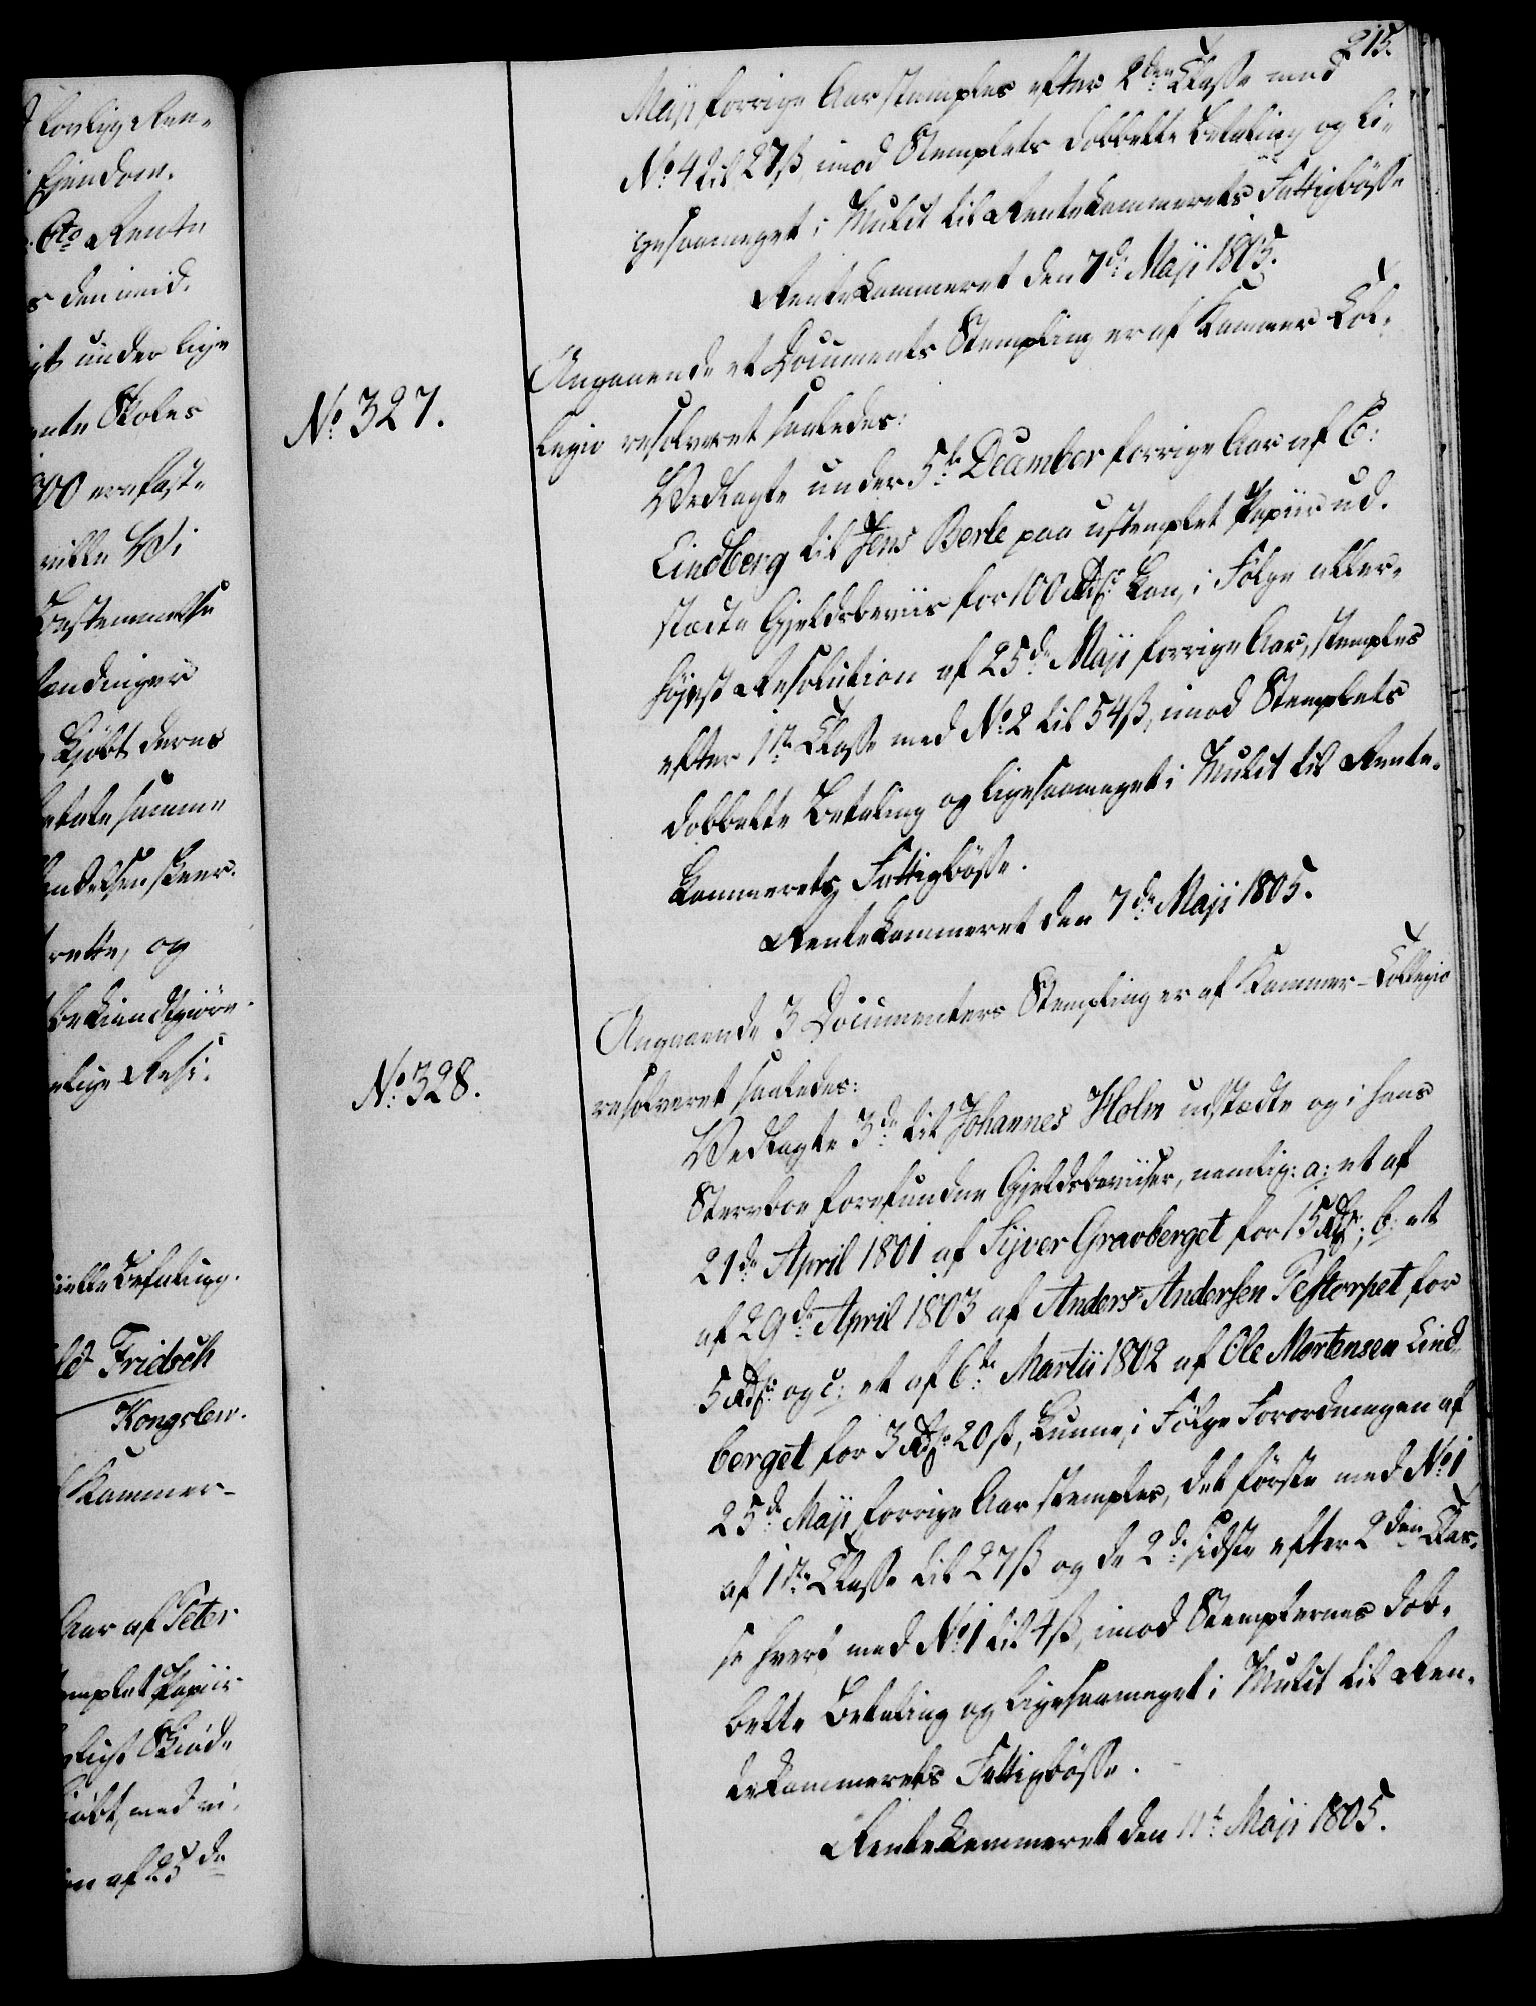 215.
Maji forrige Aar stemples efter 2den Classe med
No 4 til 27 ß, imod Stemplets dobbelte Betaling og li-
gesaameget i Mulct til Rentekammerets Fattigbøsse
Rentekammeret den 7de Maji 1805.
No 327.
Angaaende et Documents Stempling er af Kammer Col-
legio resolveret saaledes:
Vedlagte under 5te December forrige Aar af C:
Lindberg til Jens Berle paa ustemplet Papiir ud-
stædte Gjeldsbeviis for 100 Rdlr: kan, i Følge aller-
højest Resolution af 25de Maji forrige Aar, stemples
efter 1ste Classe med No 2 til 54 ß, imod Stemplets
dobbelte Betaling og ligesaameget i Mulct til Rente-
kammerets Fattigbøsse.
Rentekammeret den 7de Maji 1805.
No 328.
Angaaende 3 Documenters Stempling er af Kammer-Collegio
resolveret saaledes:
Vedlagte 3de til Johannes Holm udstædte og i hans
Sterboe forefundne Gjeldsbeviiser, nemlig: a: et af
21de April 1801 af Sijver Gravberget for 15 Rdlr; b: et
af 29de April 1803 af Anders Andersen Testorpet for
5 Rdlr: og c: et af 6te Martii 1802 af Ole Mortensen Lind-
berget for 3 Rdlr 20 ß, kunne, i Følge Forordningen af
25de Maji forrige Aar stemples, det første med No 1
af 1ste Classe til 27 ß og de 2de sidste efter 2den Clas-
se hvert med No 1 til 4 ß, imod Stemplernes dob-
belte Betaling og ligesaameget i Mulct til Ren-
tekammerets Fattigbøsse.
Rentekammeret den 11te Maji 1805.